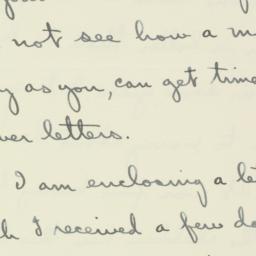 not see how a m
y as you, can get time
ver letters.
I am enclosing a le
h I received a few da